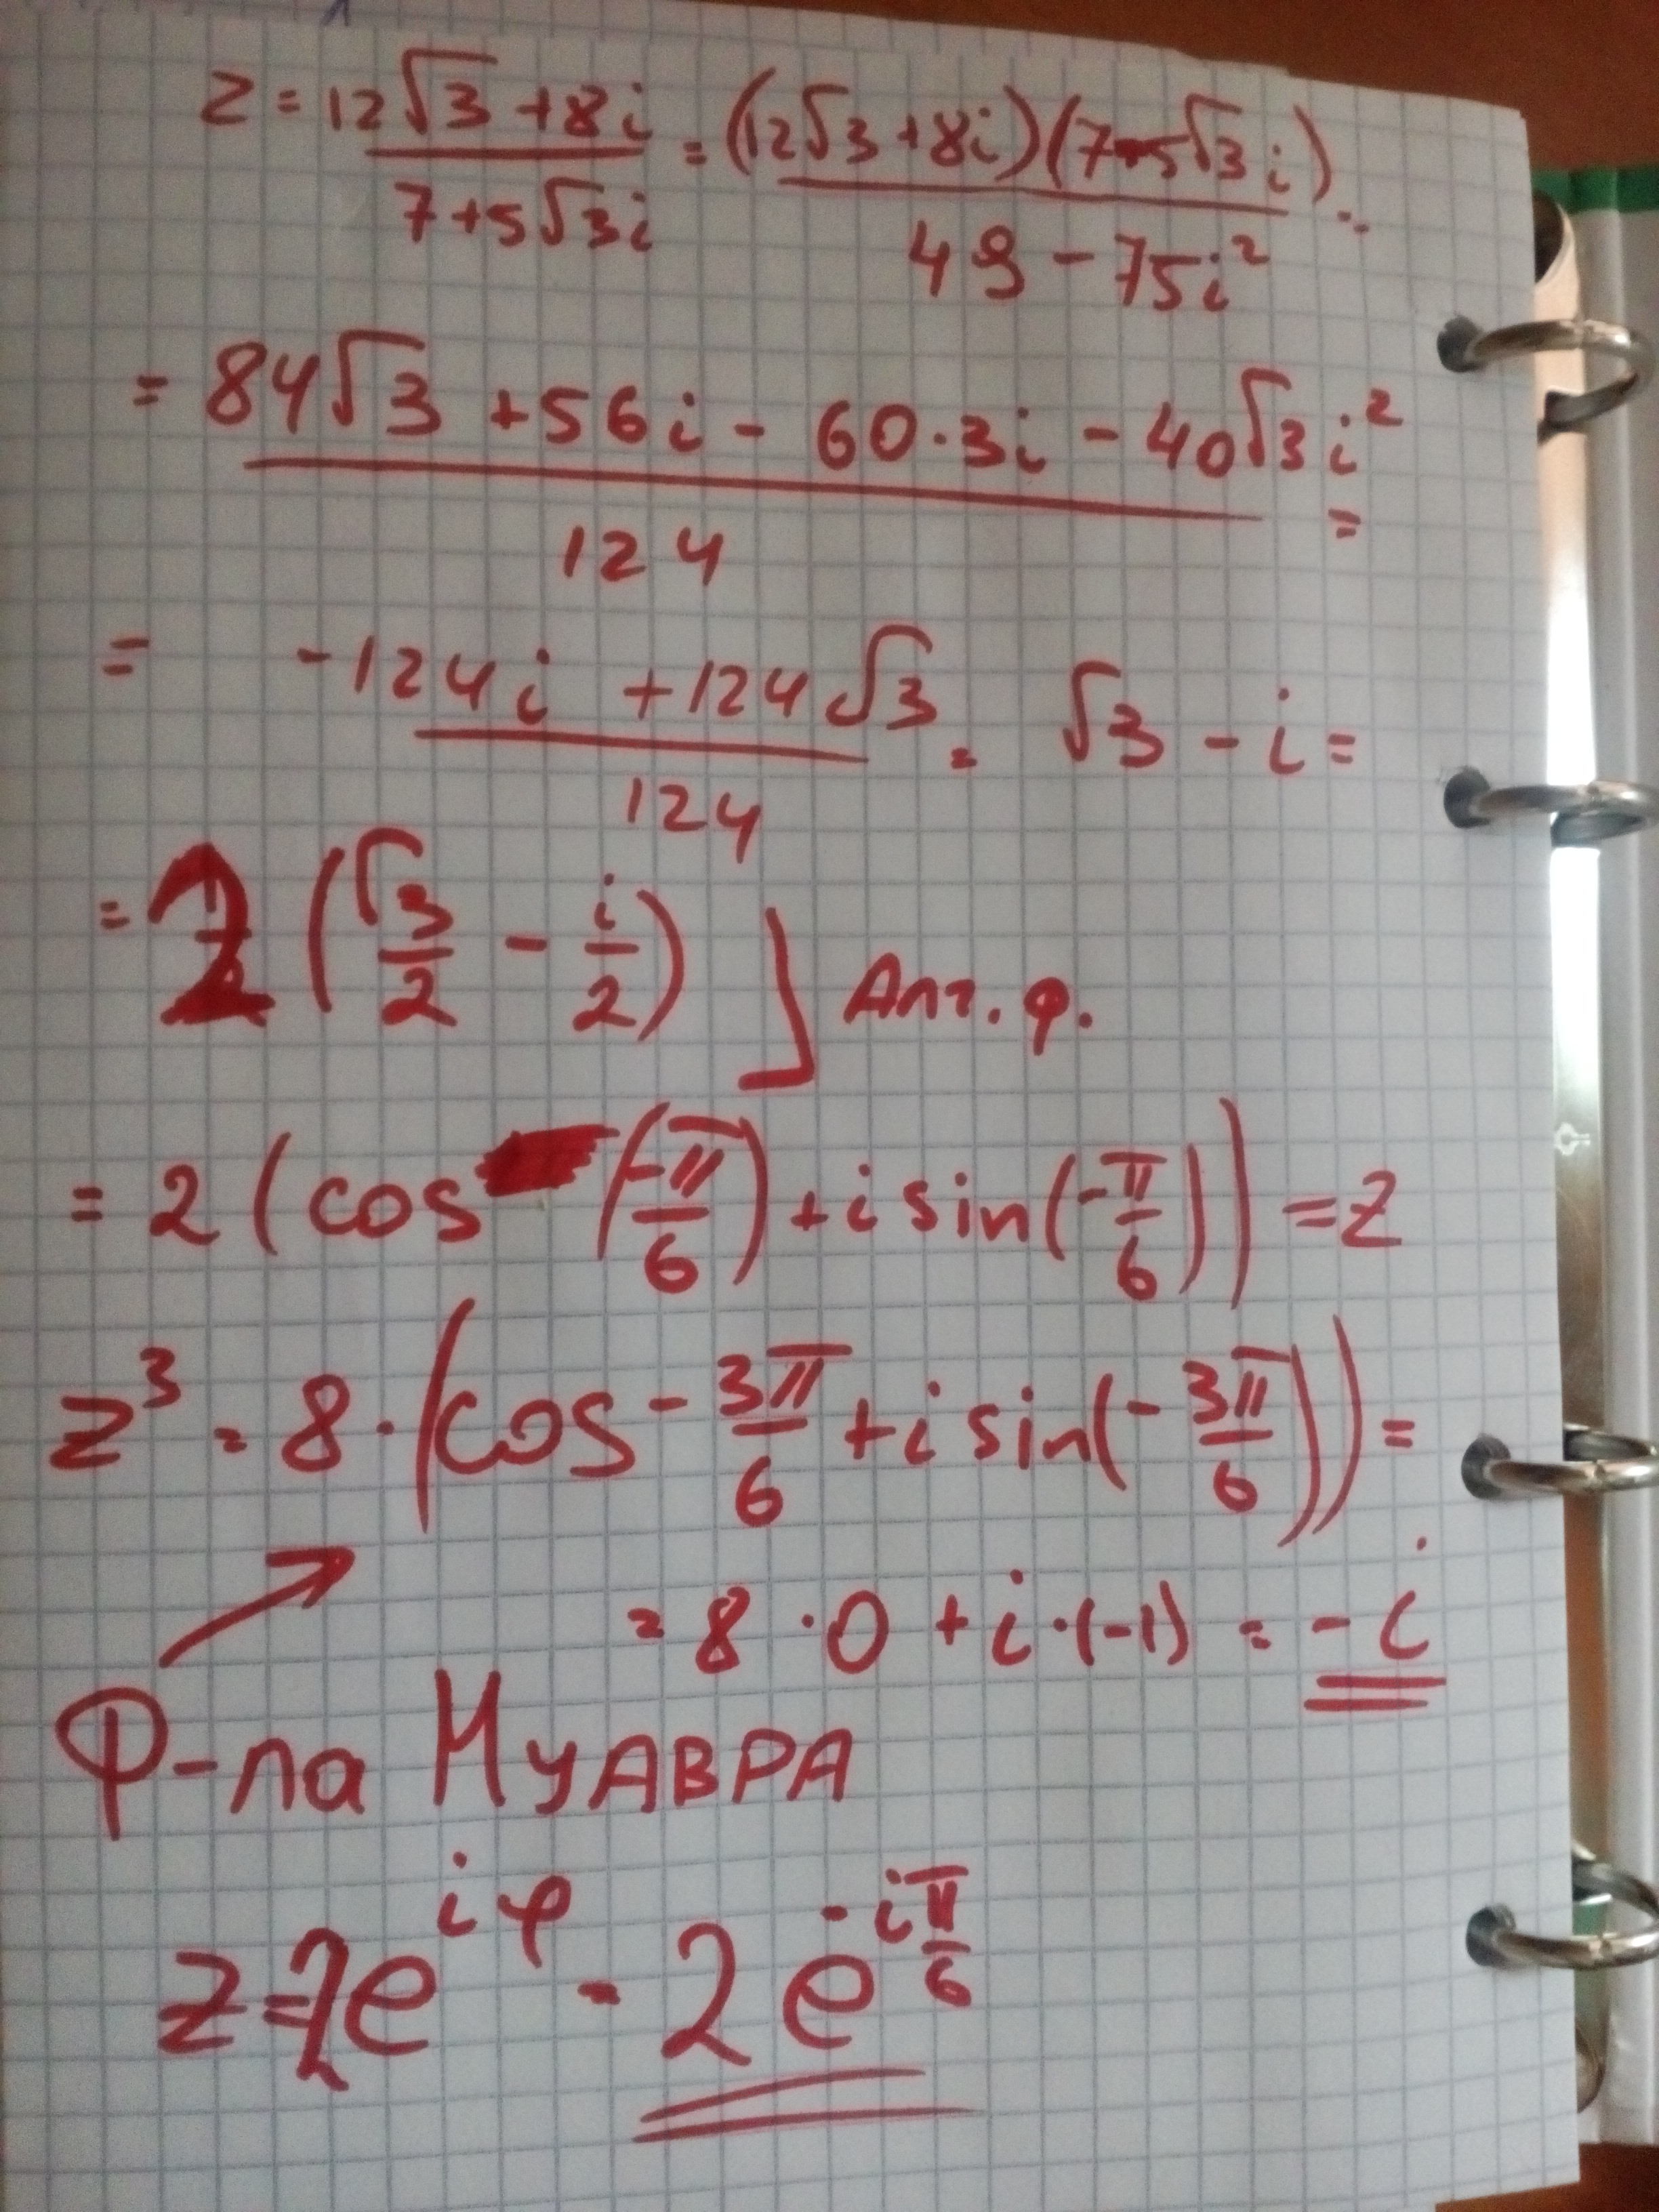 z = \frac{12\sqrt{3} + 8i}{7 + 5\sqrt{3}i} = \frac{(12\sqrt{3} + 8i)(7 - 5\sqrt{3}i)}{49 - 75i^2} =
= \frac{84\sqrt{3} + 56i - 60 \cdot 3i - 40\sqrt{3}i^2}{124} =
= \frac{-124i + 124\sqrt{3}}{124} = \sqrt{3} - i =
= 2 (\frac{\sqrt{3}}{2} - \frac{i}{2}) ] Алг. ф.
= 2 (cos (\frac{-π}{6}) + i sin (-\frac{π}{6})) = z
z^3 = 8 \cdot (cos - \frac{3π}{6} + i sin (-\frac{3π}{6})) =
= 8 \cdot 0 + i \cdot (-1) = -i
Ф-ла МУАВРА
z = 2e^{iφ} = 2e^{-i\frac{π}{6}}